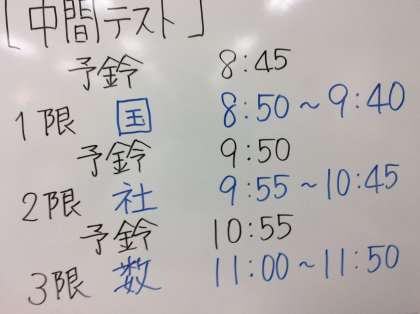 [中間テスト]
予鈴 8:45
1限 国 8:50~9:40
予鈴 9:50
2限 社 9:55~10:45
予鈴 10:55
3限 数 11:00~11:50